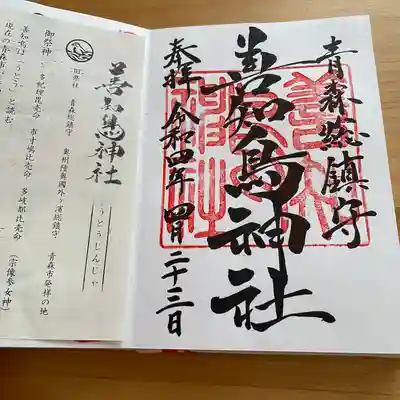 青森総鎮守
善知鳥神社
奉拝 令和四年四月二十三日
善知鳥神社
うとうじんじゃ
旧県社 青森総鎮守 奥州陸奥國外ヶ濱総鎮守 青森市発祥の地
御祭神
多紀理毘売命 市寸嶋比売命 多岐都比売命 (宗像三女神)
善知鳥は「うとう」と読む
現在の青森市